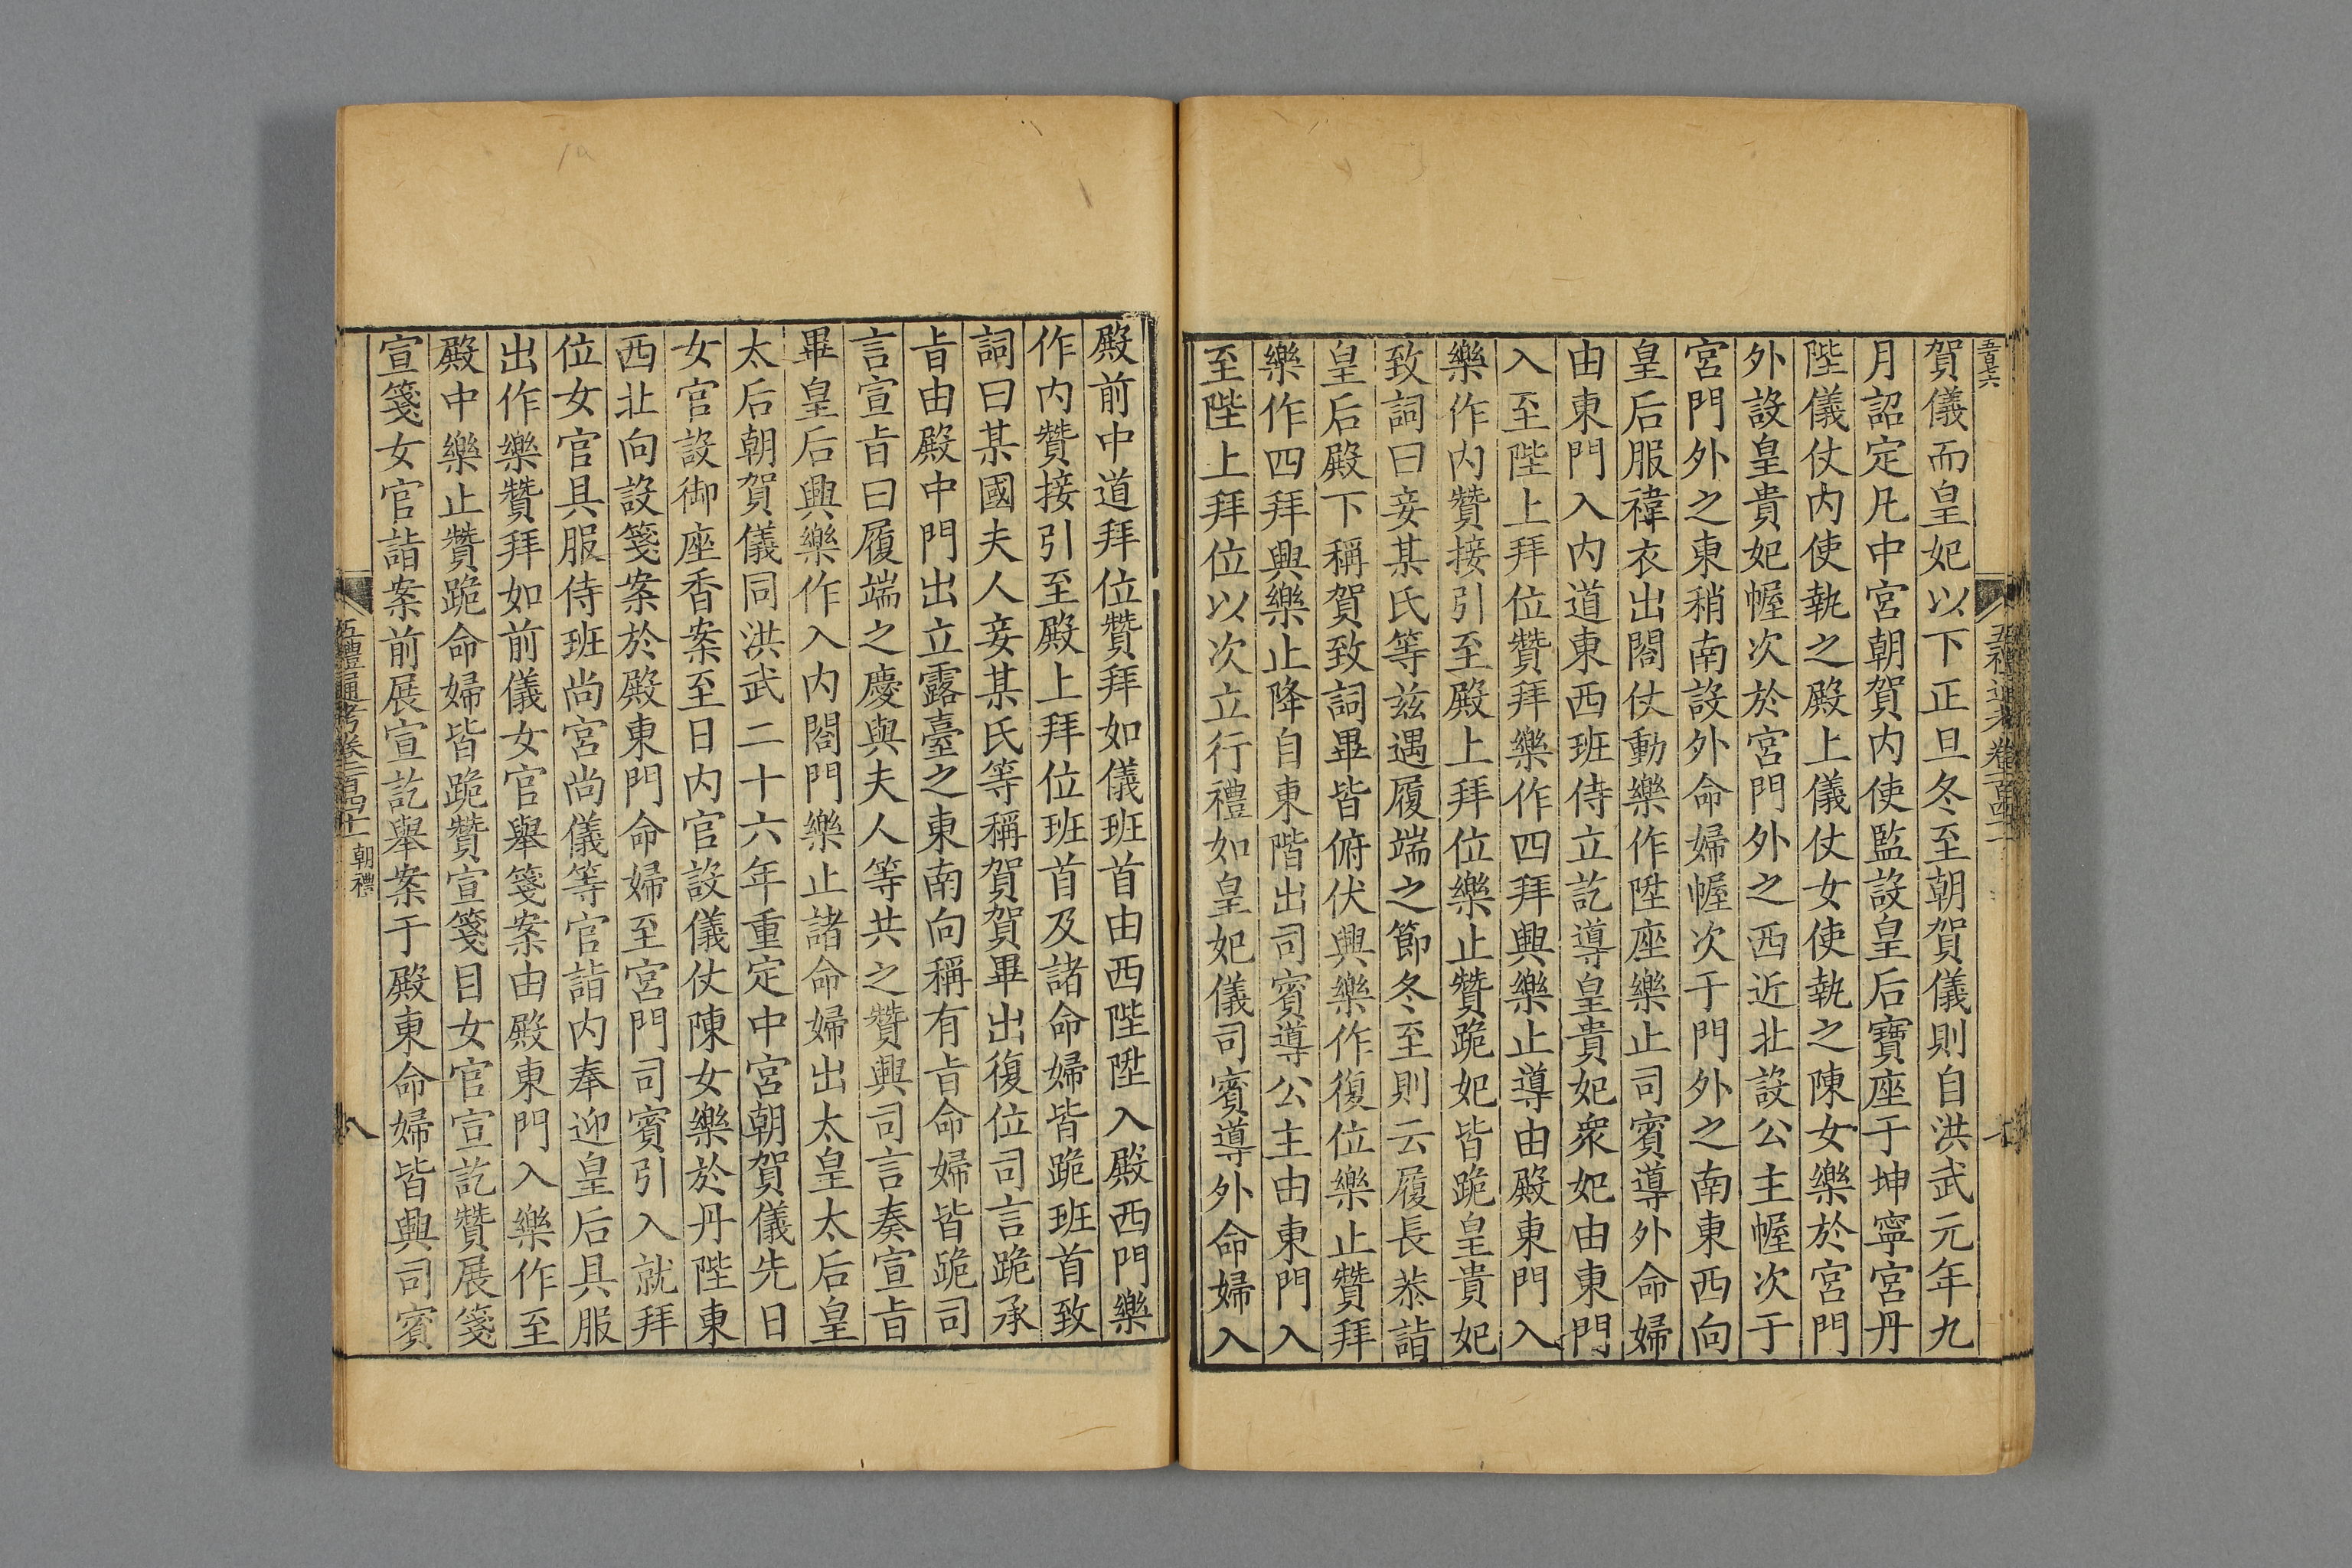 賀儀而皇妃以下正旦冬至朝賀儀則自洪武元年九
月詔定凡中宮朝賀内使監設皇后寶座于坤寧宮丹
陛儀仗内使執之殿上儀仗女使執之陳女樂於宮門
外設皇貴妃幄次於宮門外之西近北設公主幄次于
宮門外之東稍南設外命婦幄次于門外之南東西向
皇后服褘衣出閤仗動樂作陞座樂止司賓導外命婦
由東門入内道東西班侍立訖導皇貴妃衆妃由東門
入至陛上拜位贊拜樂作四拜興樂止導由殿東門入
樂作内贊接引至殿上拜位樂止贊跪妃皆跪皇貴妃
致詞曰妾某氏等兹遇履端之節冬至則云履長恭詣
皇后殿下稱賀致詞畢皆俯伏興樂作復位樂止贊拜
樂作四拜興樂止降自東階出司賓導公主由東門入
至陛上拜位以次立行禮如皇妃儀司賓導外命婦入
殿前中道拜位贊拜如儀班首由西陛陞入殿西門樂
作内贊接引至殿上拜位班首及諸命婦皆跪班首致
詞曰某國夫人妾某氏等稱賀賀畢出復位司言跪承
旨由殿中門出立露臺之東南向稱有旨命婦皆跪司
言宣旨曰履端之慶與夫人等共之贊興司言奏宣旨
畢皇后興樂作入内閤門樂止諸命婦出太皇太后皇
太后朝賀儀同洪武二十六年重定中宮朝賀儀先日
女官設御座香案至日内官設儀仗陳女樂於丹陛東
西北向設箋案於殿東門命婦至宮門司賓引入就拜
位女官具服侍班尚宮尚儀等官詣内奉迎皇后具服
出作樂贊拜如前儀女官舉箋案由殿東門入樂作至
殿中樂止贊跪命婦皆跪贊宣箋目女官宣訖贊展箋
宣箋女官詣案前展宣訖舉案于殿東命婦皆興司賓
五禮通考卷一百四十一
朝禮
八